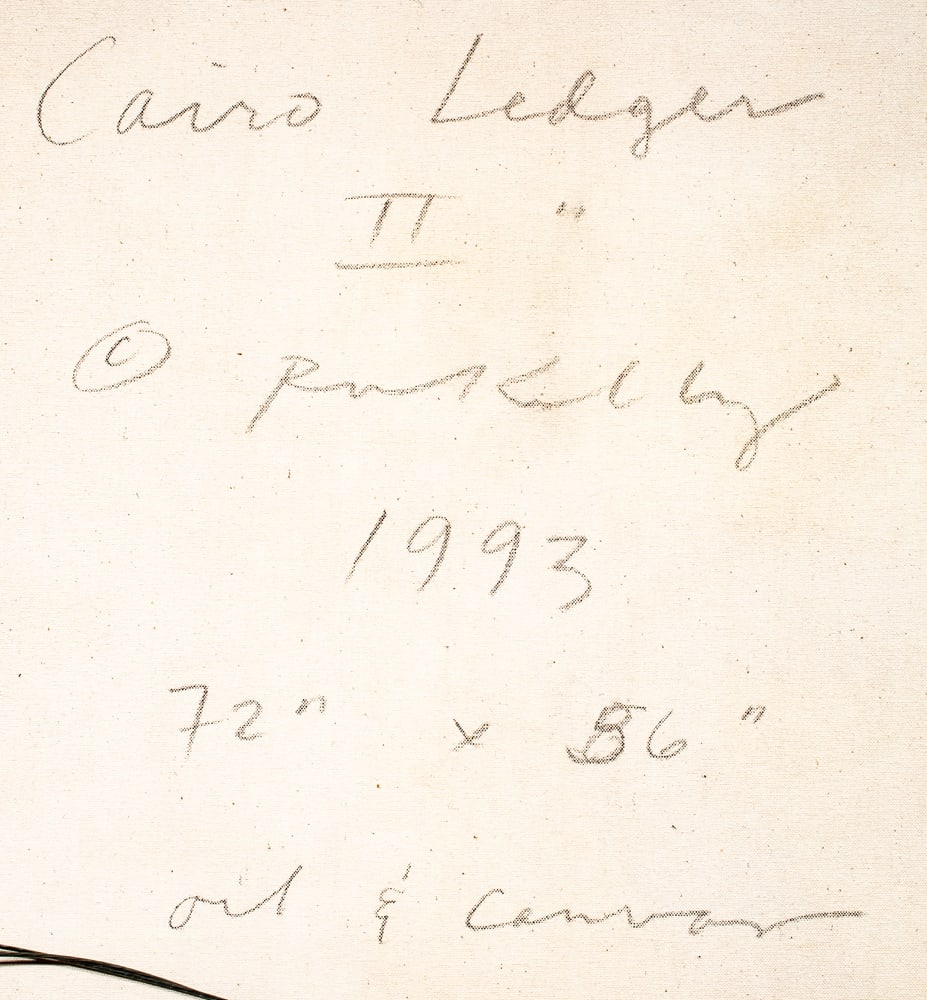 Cairo Ledger
II "
©
1993
72" x 56"
oil & canvas